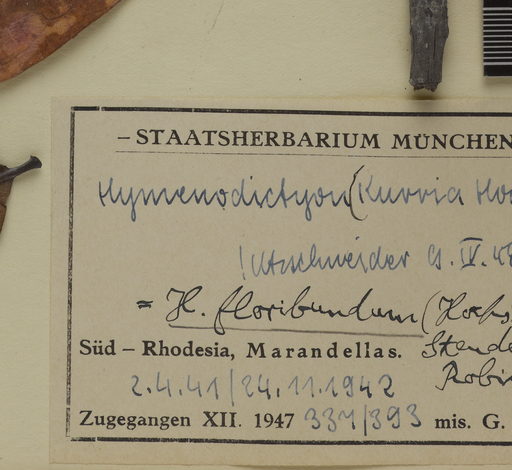 – STAATSHERBARIUM MÜNCHEN
Hymenodictyon (Kurria Ho
! Utschneider 9. IV. 48
= H. floribundum (Hochs
Süd – Rhodesia, Marandellas. Steude
Robin
2.4.41/24.11.1942
Zugegangen XII. 1947 337/393 mis. G.